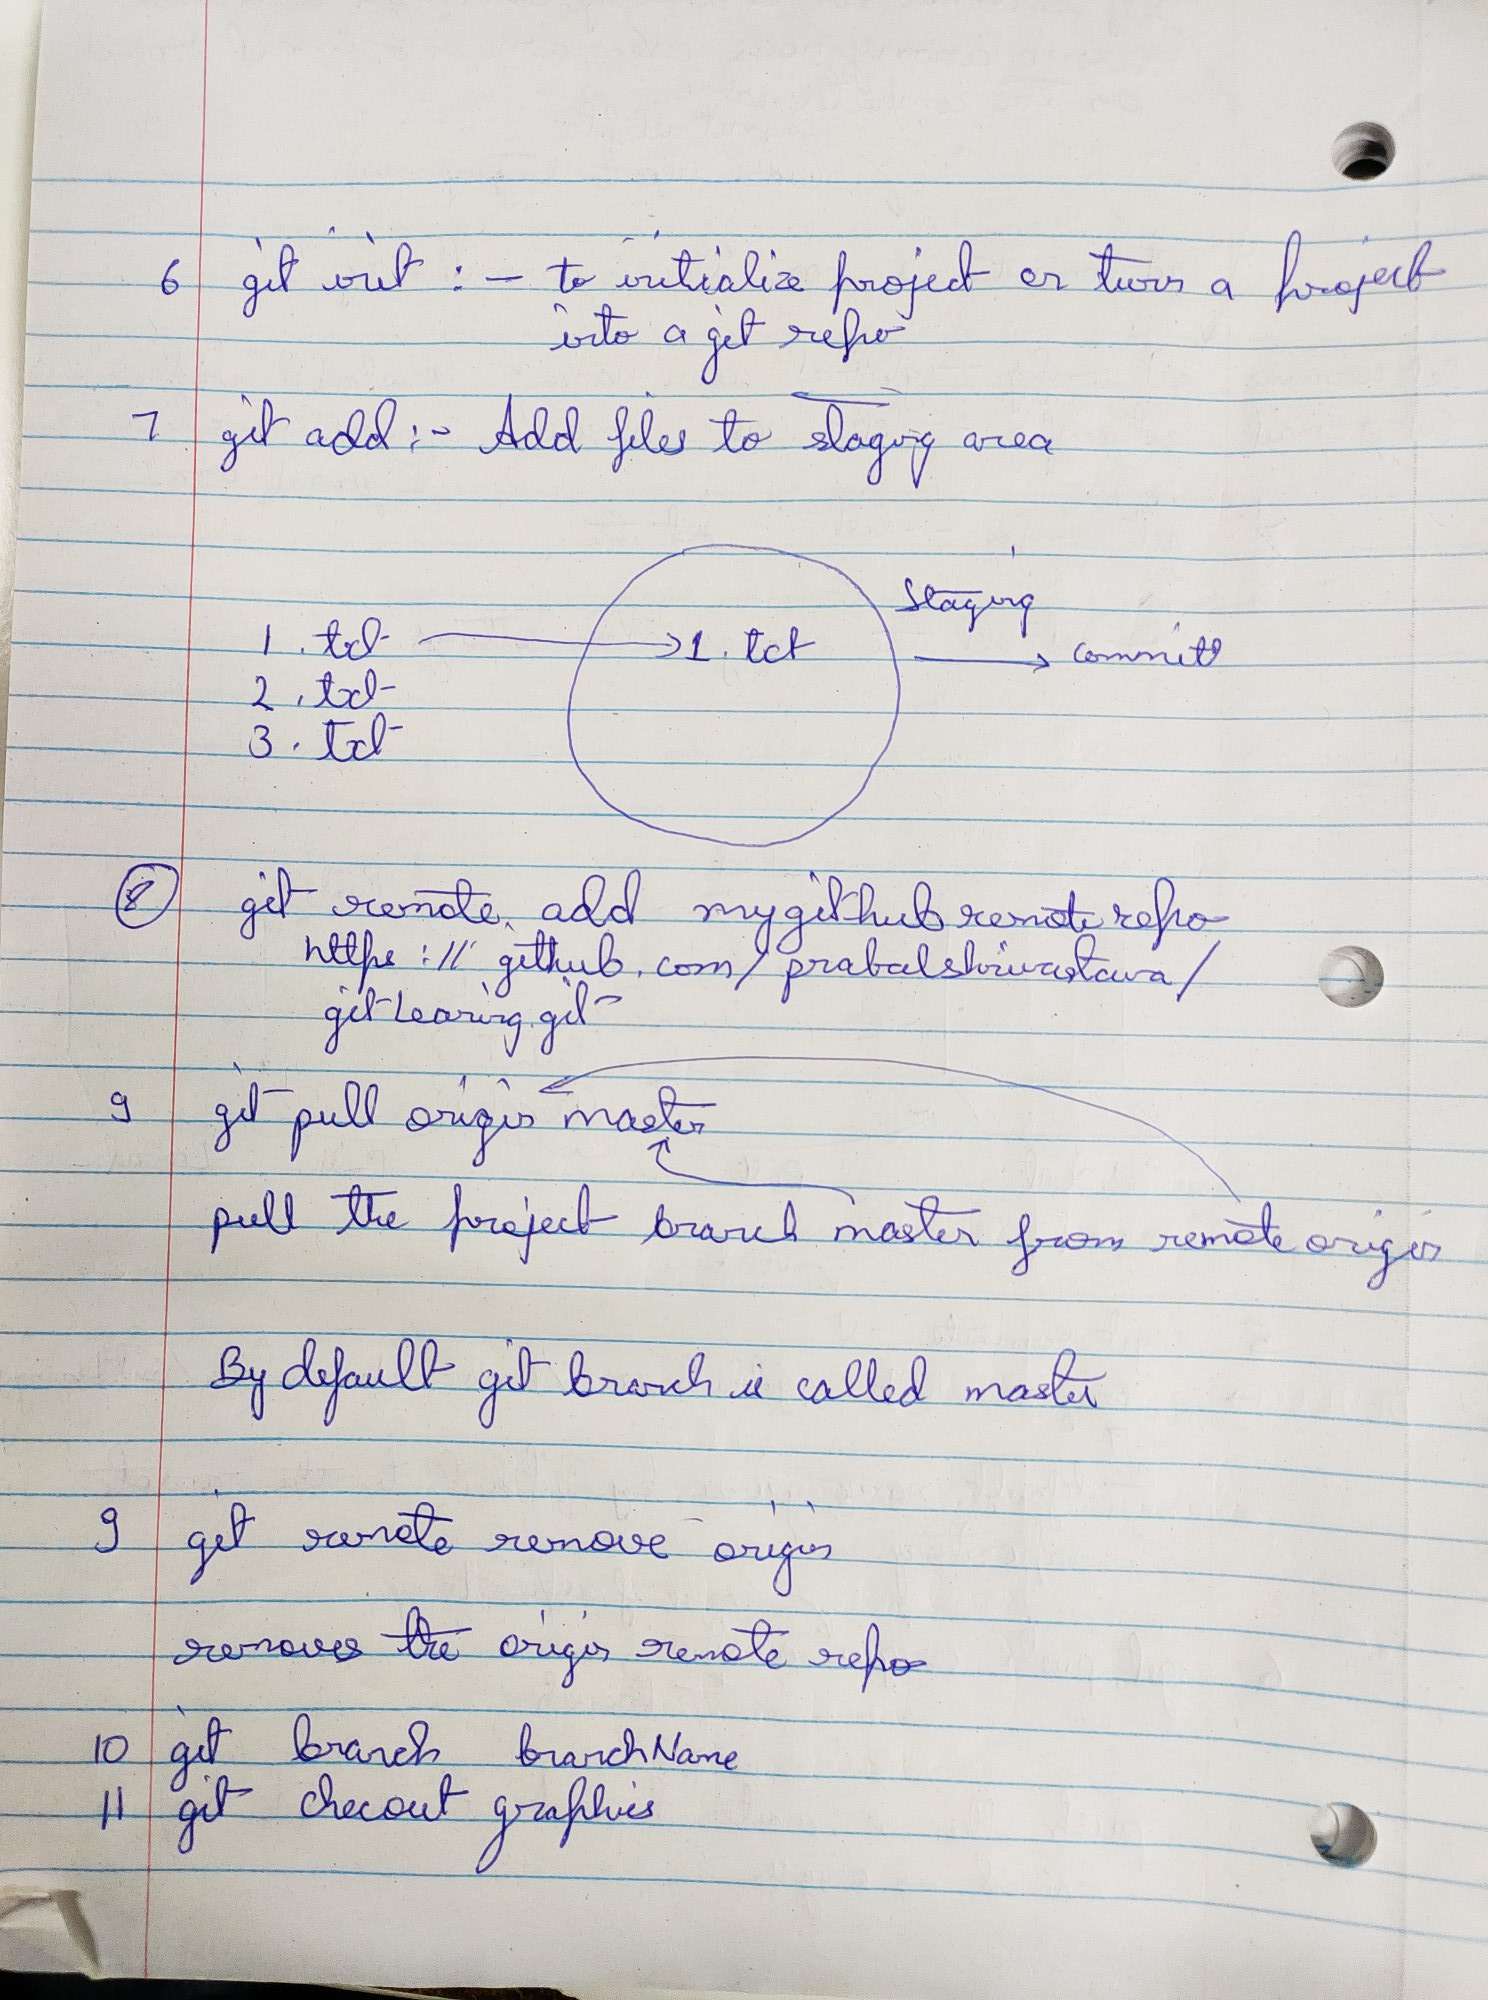 6 git init :- to initialize project or turn a project
into a git repo
7 git add :- Add files to staging area
Staging
1 . txt 1 . txt commit
2 . txt
3 . txt
8 git remote add mygithubremoterepo
https://github.com/prabalshrivastava/
gitLearing.git
9 git pull origin master
pull the project branch master from remote origin
By default git branch is called master
9 git remote remove origin
removes the origin remote repo
10 git branch branchName
11 git checout graphics